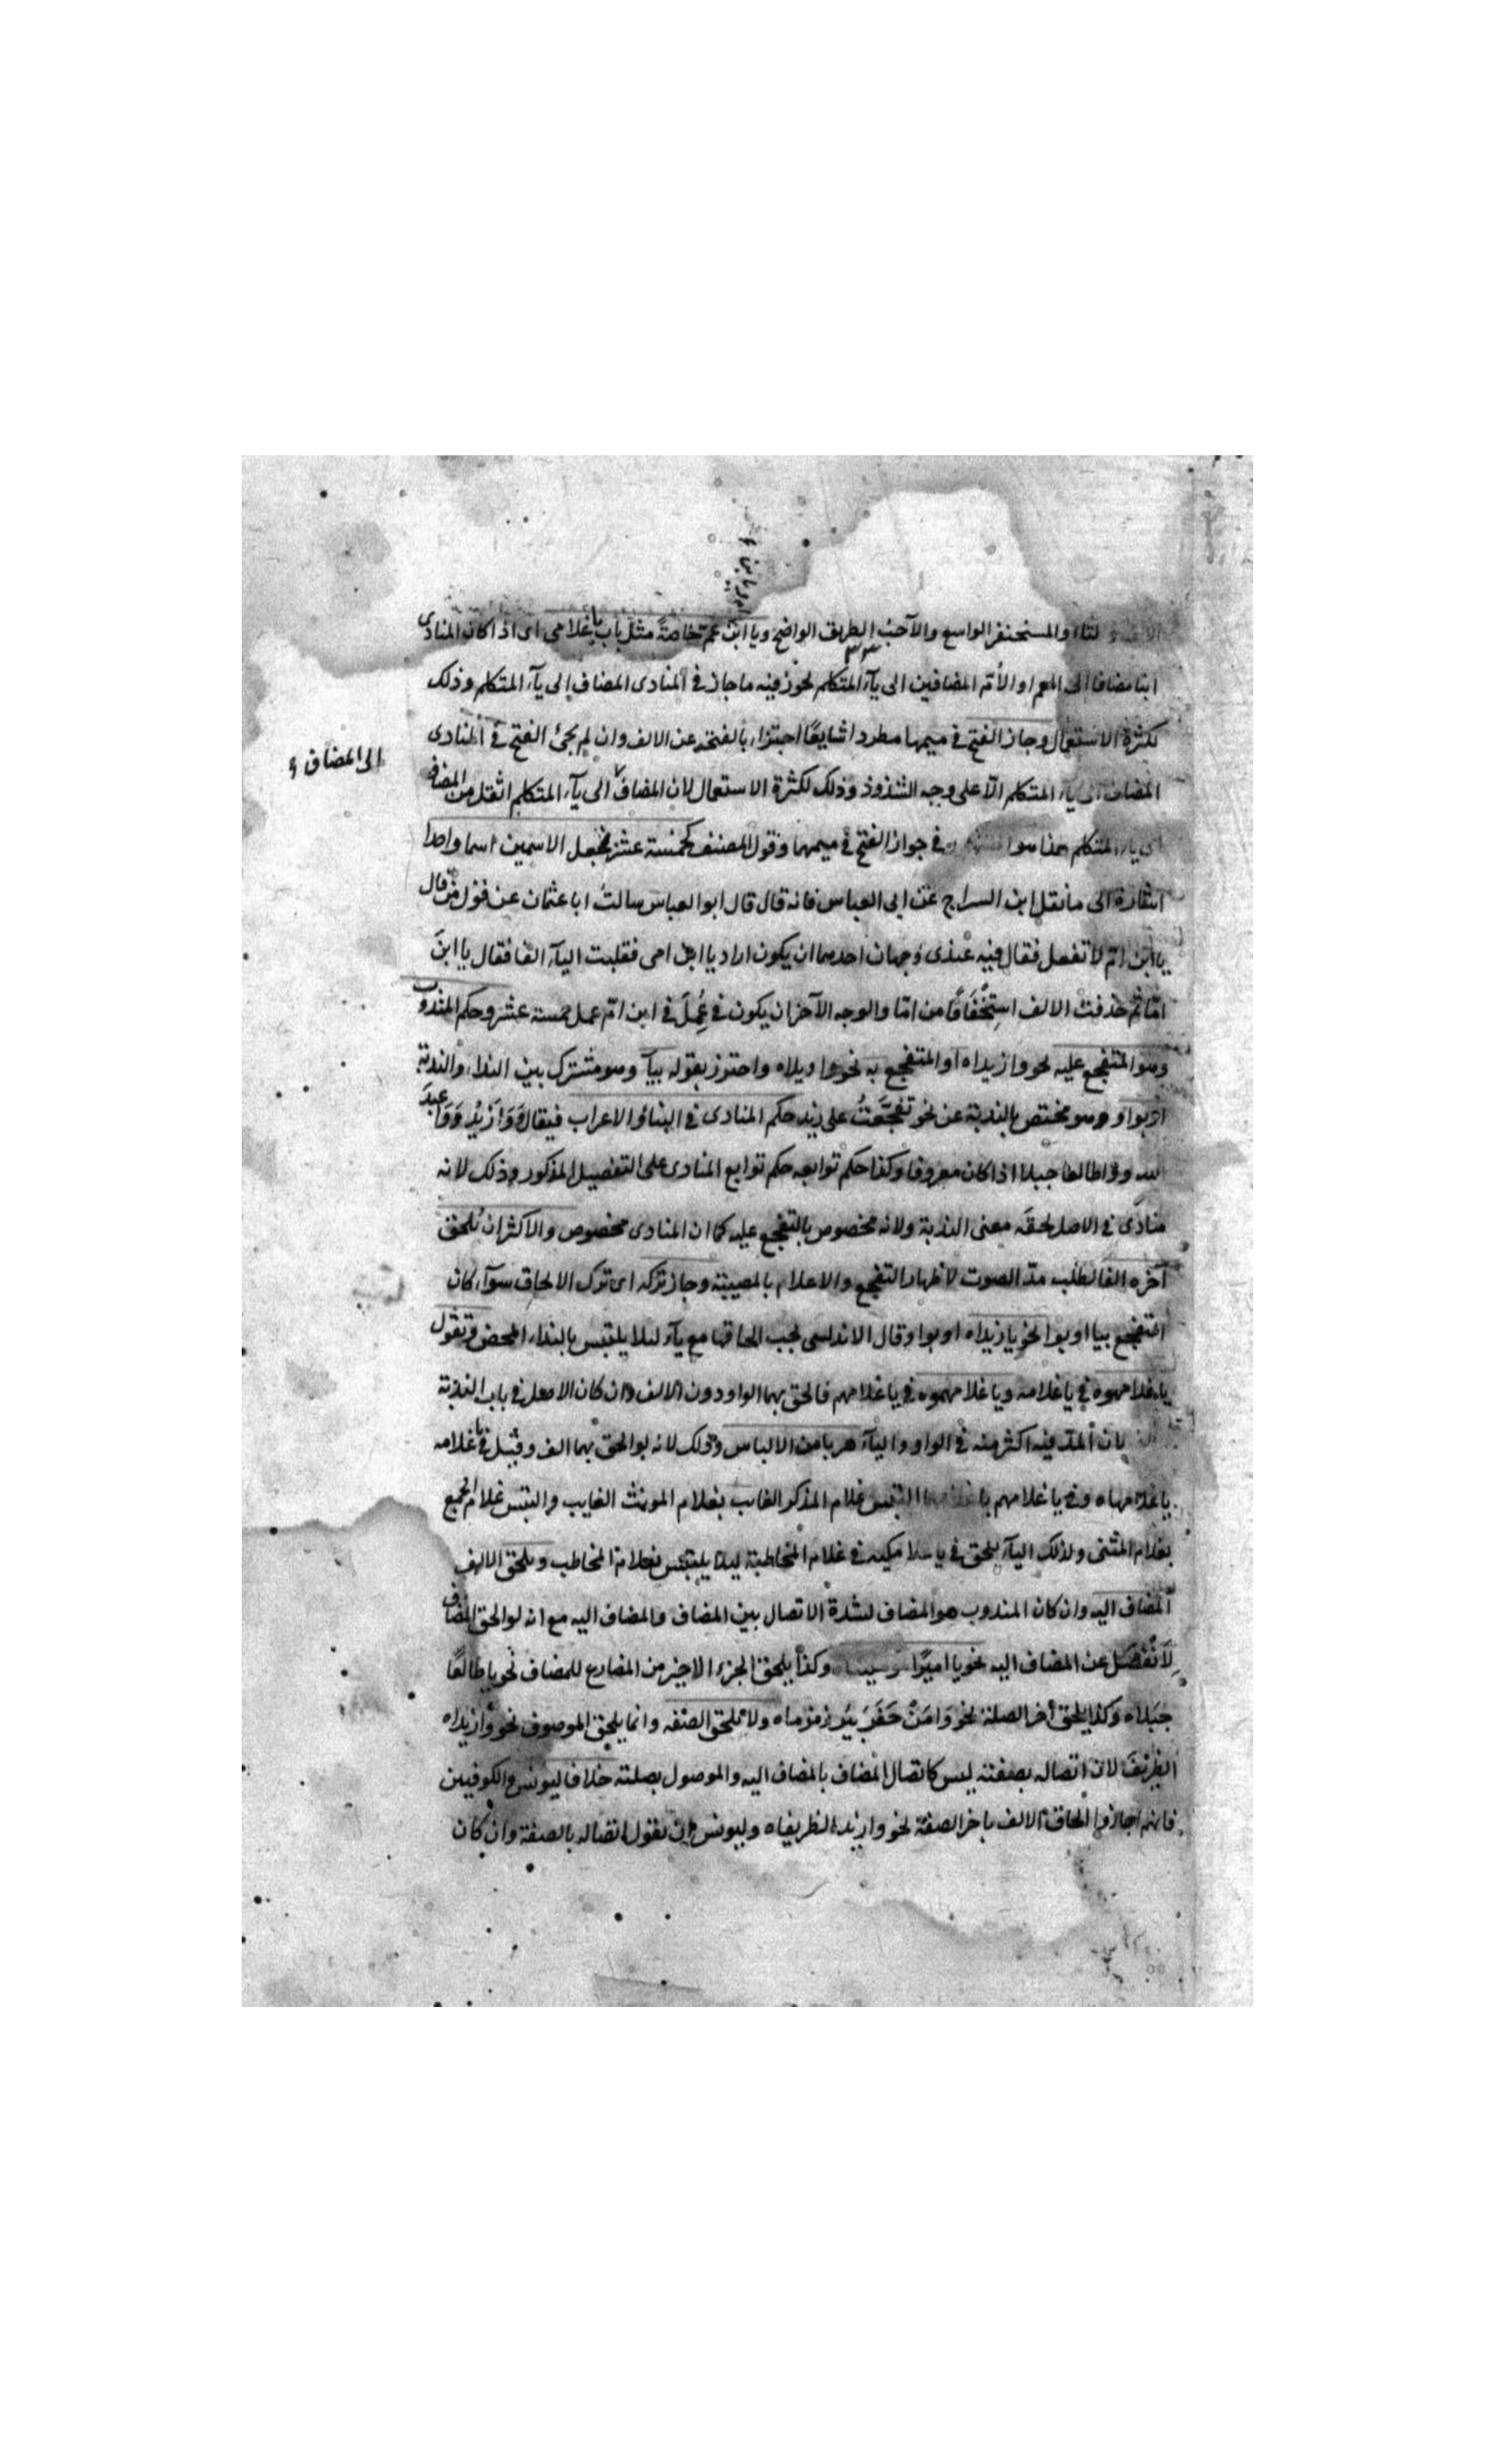 لنا والمسحنفر الواسع والآحب الطريق الواضح ويا ابن عم خاصةً مثل باب يا غلامى اى اذا كان المنادى
ابنا مضافا الى العم او الأم المضافين الى يآء المتكلم يجوز فيه ما جاز فى المنادى المضاف الى يآء المتكلم وذلك
لكثرة الاستعمال وجاز الفتح فى ميمها مطردا شايعًا اجتزاء بالفتحة عن الالف وان لم يجئ الفتح فى المنادى
المضاف الى يآء المتكلم الّا على وجه الشذوذ وذلك لكثرة الاستعمال لان المضاف الى يآء المتكلم اثقل من المضاف
الى المضاف
الى يآء المتكلم هذا هو فى جواز الفتح فى ميمهما وقول المصنف كخمسة عشر بجعل الاسمين اسما واحدا
اشارة الى ما نقل ابن السراج عن ابى العباس فانه قال قال ابو العباس سالتُ ابا عثمان عن قول من قال
يا ابن ام لا تفعل فقال فيه عندى وجهان احدهما ان يكون اراد يا ابن امى فقلبت اليآء الفا فقال يا ابنَ
امّا ثم حذفت الالف استخفافًا من امّا والوجه الآخر ان يكون فى عُمِلَ فى ابن ام عمل خمسة عشر وحكم المندوب
وهو المتفجع عليه نحو وا زيداه او المتفجع به نحو وا ويلاه واحترز بقوله بيا وهو مشترك بين النداء والندبة
او بوا وهو مختص بالندبة عن نحو تفجّعتُ على زيد حكم المنادى فى البناء والاعراب فيقال وَا زيدُ وَوَا عبدَ
الله ووا طالعا جبلا اذا كان معروفا وكذا حكم توابعه حكم توابع المنادى على التفصيل المذكور وذلك لانه
منادًى فى الاصل لحقه معنى الندبة ولانه مخصوص بالتفجع عليه كما ان المنادى مخصوص والاكثر ان يُلحق
آخره الفا لطلب مدّ الصوت لاظهار التفجع والاعلام بالمصيبة وجاز تركه اى ترك الالحاق سوآء كان
المتفجع بيا او بوا نحو يا زيداه او بوا وقال الاندلسى يجب الحاقها مع يآء لئلا يلتبس بالنداء المحض وتقول
يا غلامهوه فى يا غلامه ويا غلامهموه فى يا غلامهم فالحق بهما الواو دون الالف وان كان الاصل فى باب الندبة
لان المدّ فيه اكثر منه فى الواو واليآء هربا من الالباس وذلك لانه لو الحق بهما الف وقيل فى يا غلامه
يا غلامهاه وفى يا غلامهم التبس غلام المذكر الغايب بغلام المونث الغايب والتبس غلام الجمع
بغلام المثنى ولذلك اليآء يلحق فى يا غلامكيه فى غلام المخاطبة ليلا يلتبس بغلام المخاطب ويلحق الالف
المضاف اليه وان كان المندوب هو المضاف لشدة الاتصال بين المضاف والمضاف اليه مع انه لو الحق المضاف
لانفصل عن المضاف اليه نحو يا امير وكذا يلحق الجزء الاخير من المضارع للمضاف نحو يا طالعًا
جبلاه وكذا يلحق آخر الصلة نحو وَا مَنْ حَفَرَ بئر زمزماه ولا تلحق الصفة وانما يلحق الموصوف نحو وا زيداه
الظريفَ لان اتصاله بصفته ليس كاتصال المضاف بالمضاف اليه والموصول بصلته خلافا ليونس والكوفيين
فانهم اجازوا الحاق الالف باخر الصفة نحو وا زيد الظريفاه وليونس ان يقول اتصاله بالصفة وان كان